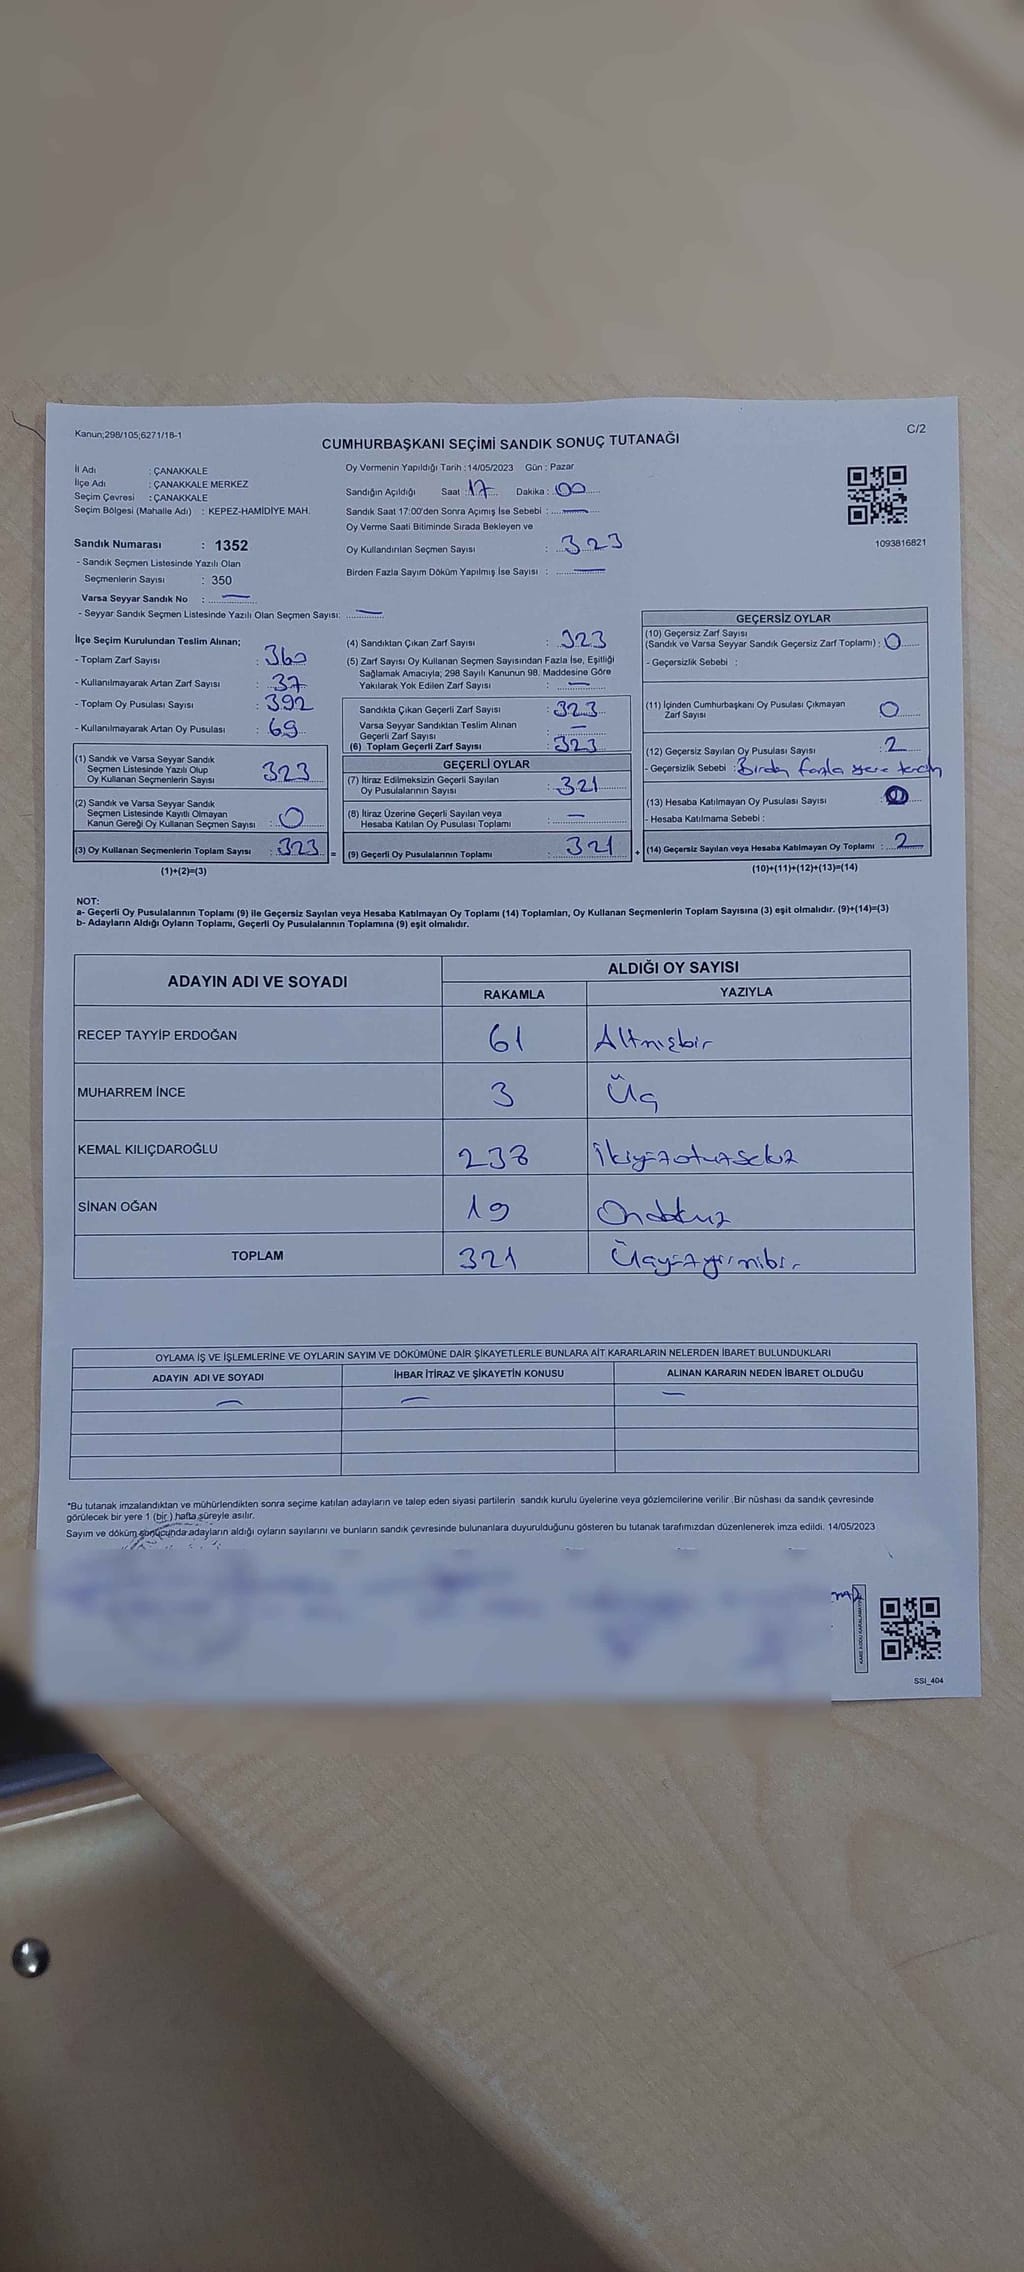 Kanun;298/105;6271/18-1
C/2
CUMHURBAŞKANI SEÇİMİ SANDIK SONUÇ TUTANAĞI
İl Adı : ÇANAKKALE
İlçe Adı : ÇANAKKALE MERKEZ
Seçim Çevresi : ÇANAKKALE
Seçim Bölgesi (Mahalle Adı) : KEPEZ-HAMİDİYE MAH.
Sandık Numarası : 1352
- Sandık Seçmen Listesinde Yazılı Olan
Seçmenlerin Sayısı : 350
Varsa Seyyar Sandık No : —
- Seyyar Sandık Seçmen Listesinde Yazılı Olan Seçmen Sayısı: —
Oy Vermenin Yapıldığı Tarih : 14/05/2023 Gün : Pazar
Sandığın Açıldığı Saat : 17 Dakika : 00
Sandık Saat 17:00'den Sonra Açımış İse Sebebi : —
Oy Verme Saati Bitiminde Sırada Bekleyen ve
Oy Kullandırılan Seçmen Sayısı : 323
Birden Fazla Sayım Döküm Yapılmış İse Sayısı : —
1093816821
İlçe Seçim Kurulundan Teslim Alınan;
- Toplam Zarf Sayısı : 360
- Kullanılmayarak Artan Zarf Sayısı : 37
- Toplam Oy Pusulası Sayısı : 392
- Kullanılmayarak Artan Oy Pusulası : 69
(1) Sandık ve Varsa Seyyar Sandık
Seçmen Listesinde Yazılı Olup
Oy Kullanan Seçmenlerin Sayısı 323
(2) Sandık ve Varsa Seyyar Sandık
Seçmen Listesinde Kayıtlı Olmayan
Kanun Gereği Oy Kullanan Seçmen Sayısı : 0
(3) Oy Kullanan Seçmenlerin Toplam Sayısı : 323 =
(1)+(2)=(3)
(4) Sandıktan Çıkan Zarf Sayısı : 323
(5) Zarf Sayısı Oy Kullanan Seçmen Sayısından Fazla İse, Eşitliği
Sağlamak Amacıyla; 298 Sayılı Kanunun 98. Maddesine Göre
Yakılarak Yok Edilen Zarf Sayısı : —
Sandıkta Çıkan Geçerli Zarf Sayısı : 323
Varsa Seyyar Sandıktan Teslim Alınan
Geçerli Zarf Sayısı : —
(6) Toplam Geçerli Zarf Sayısı : 323
GEÇERLİ OYLAR
(7) İtiraz Edilmeksizin Geçerli Sayılan
Oy Pusulalarının Sayısı : 321
(8) İtiraz Üzerine Geçerli Sayılan veya
Hesaba Katılan Oy Pusulası Toplamı : —
(9) Geçerli Oy Pusulalarının Toplamı : 321 +
GEÇERSİZ OYLAR
(10) Geçersiz Zarf Sayısı
(Sandık ve Varsa Seyyar Sandık Geçersiz Zarf Toplamı) : 0
- Geçersizlik Sebebi :
(11) İçinden Cumhurbaşkanı Oy Pusulası Çıkmayan
Zarf Sayısı 0
(12) Geçersiz Sayılan Oy Pusulası Sayısı : 2
- Geçersizlik Sebebi : Birden fazla yere tercih
(13) Hesaba Katılmayan Oy Pusulası Sayısı :
- Hesaba Katılmama Sebebi :
(14) Geçersiz Sayılan veya Hesaba Katılmayan Oy Toplamı : 2
(10)+(11)+(12)+(13)=(14)
NOT:
a- Geçerli Oy Pusulalarının Toplamı (9) ile Geçersiz Sayılan veya Hesaba Katılmayan Oy Toplamı (14) Toplamları, Oy Kullanan Seçmenlerin Toplam Sayısına (3) eşit olmalıdır. (9)+(14)=(3)
b- Adayların Aldığı Oyların Toplamı, Geçerli Oy Pusulalarının Toplamına (9) eşit olmalıdır.
ADAYIN ADI VE SOYADI
ALDIĞI OY SAYISI
RAKAMLA YAZIYLA
RECEP TAYYİP ERDOĞAN 61 Altmışbir
MUHARREM İNCE 3 Üç
KEMAL KILIÇDAROĞLU 238 İkiyüzotuzsekiz
SİNAN OĞAN 19 Ondokuz
TOPLAM 321 Üçyüzyirmibir
OYLAMA İŞ VE İŞLEMLERİNE VE OYLARIN SAYIM VE DÖKÜMÜNE DAİR ŞİKAYETLERLE BUNLARA AİT KARARLARIN NELERDEN İBARET BULUNDUKLARI
ADAYIN ADI VE SOYADI İHBAR İTİRAZ VE ŞİKAYETİN KONUSU ALINAN KARARIN NEDEN İBARET OLDUĞU
— — —
*Bu tutanak imzalandıktan ve mühürlendikten sonra seçime katılan adayların ve talep eden siyasi partilerin sandık kurulu üyelerine veya gözlemcilerine verilir .Bir nüshası da sandık çevresinde
görülecek bir yere 1 (bir ) hafta süreyle asılır.
Sayım ve döküm sonucunda adayların aldığı oyların sayılarını ve bunların sandık çevresinde bulunanlara duyurulduğunu gösteren bu tutanak tarafımızdan düzenlenerek imza edildi. 14/05/2023
KARE KODU KARALAMAYINIZ
SSI_404